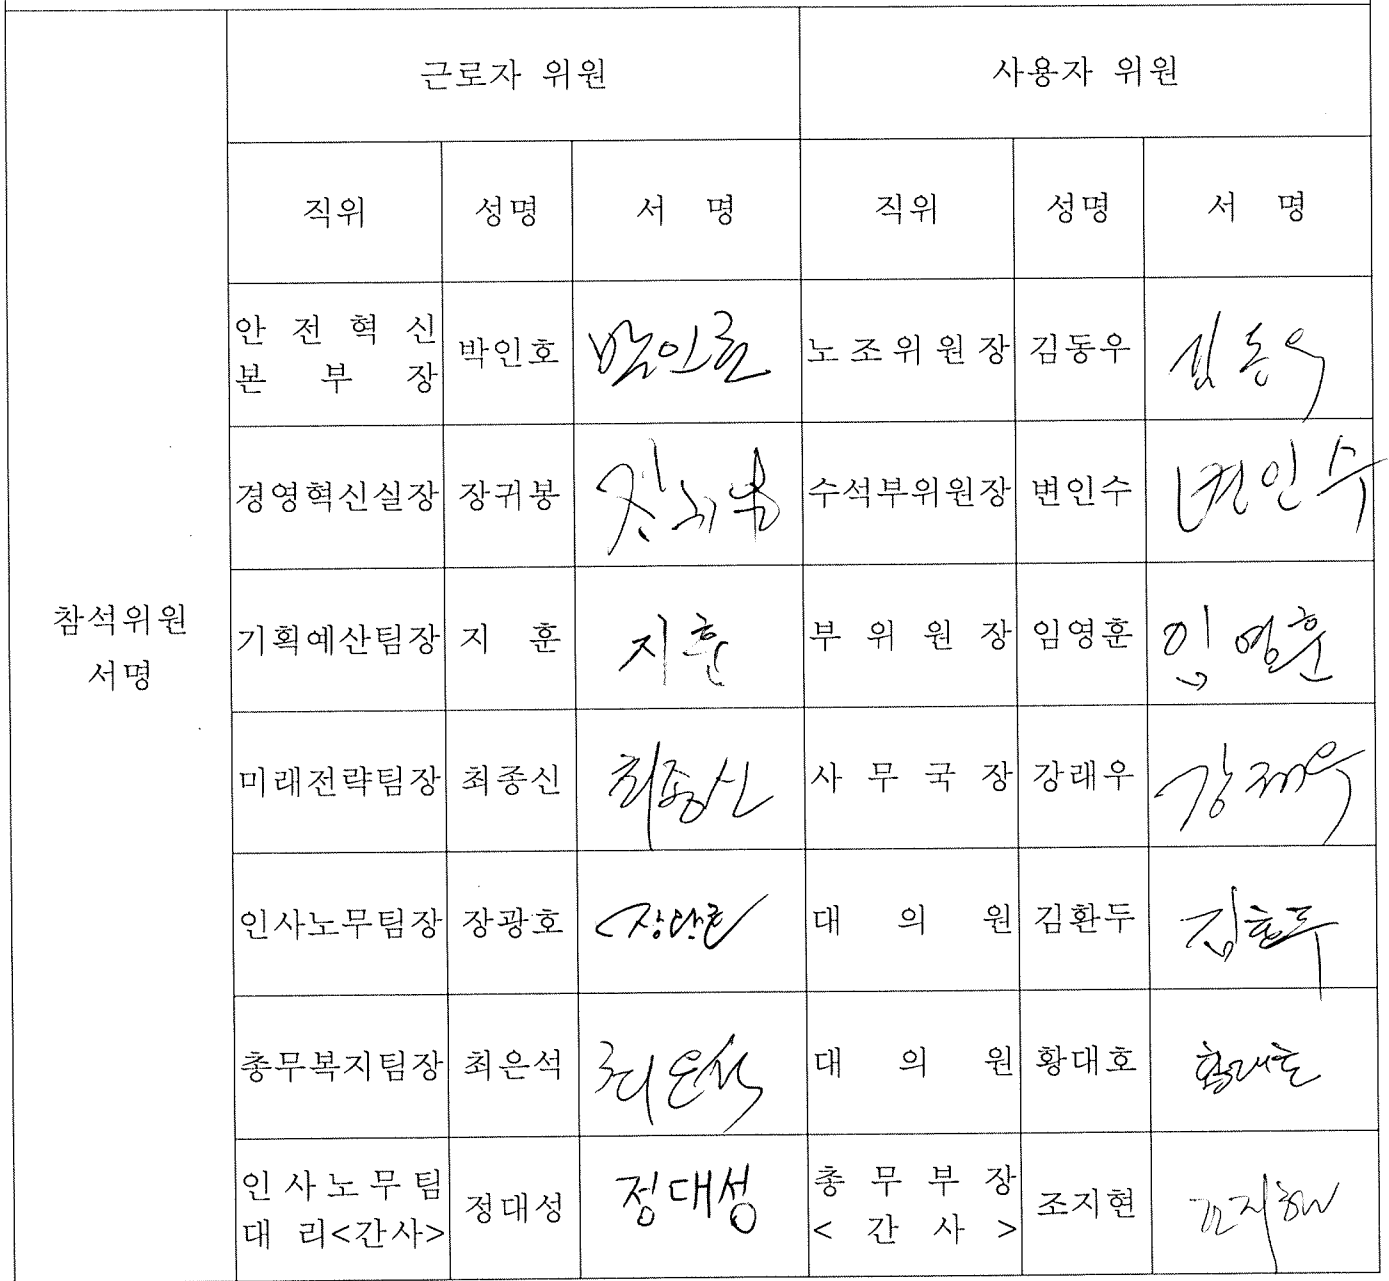 근로자 위원 사용자 위원
직위 성명 서 명 직위 성명 서 명
안 전 혁 신
본 부 장 박인호 박인호 노조위원장 김동우 김동우
경영혁신실장 장귀봉 장귀봉 수석부위원장 변인수 변인수
참석위원
서명
기획예산팀장 지 훈 지훈 부 위 원 장 임영훈 임영훈
미래전략팀장 최종신 최종신 사 무 국 장 강래우 강래우
인사노무팀장 장광호 장광호 대 의 원 김환두 김환두
총무복지팀장 최은석 최은석 대 의 원 황대호 황대호
인사노무팀
대 리<간사> 정대성 정대성 총 무 부 장
< 간 사 > 조지현 조지현